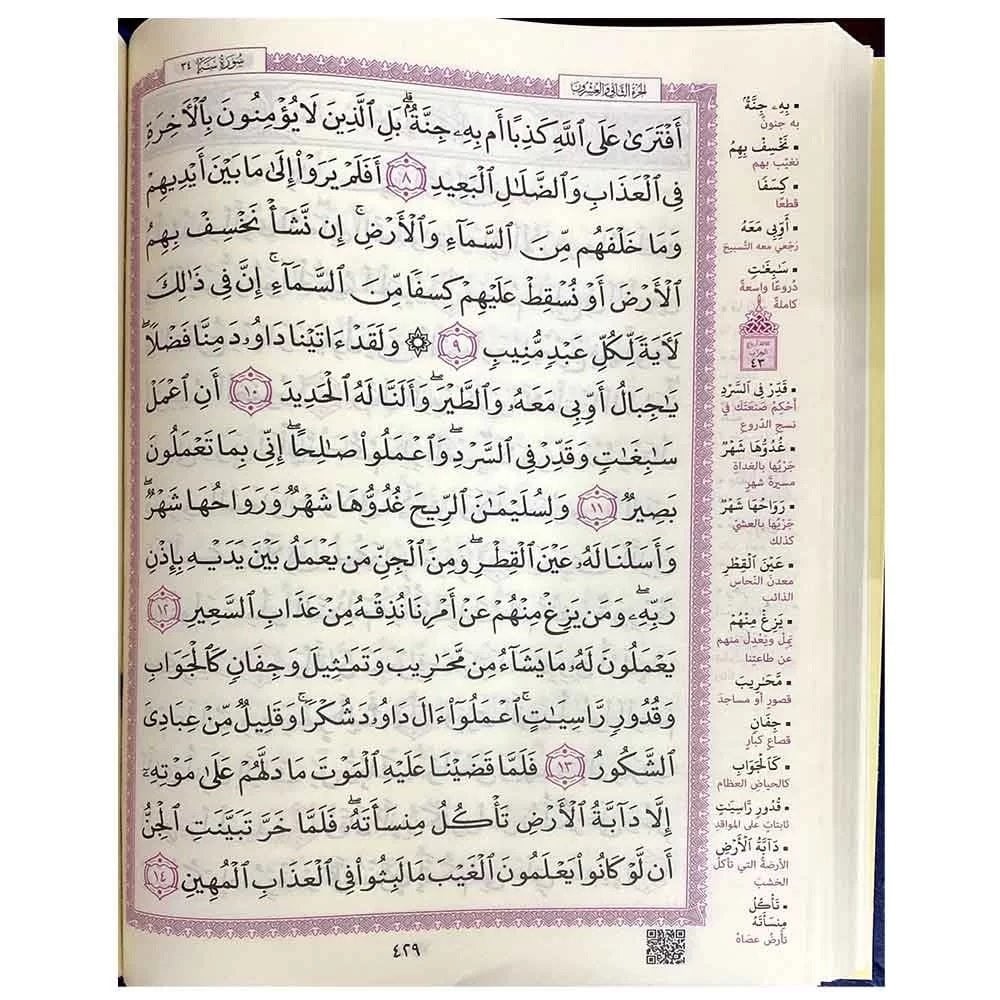 سُورَةُ سَبَإٍ ٣٤
الجُزْءُ الثَّانِي وَالعِشْرُونَ
أَفْتَرَىٰ عَلَى ٱللَّهِ كَذِبًا أَم بِهِۦ جِنَّةٌۗ بَلِ ٱلَّذِينَ لَا يُؤْمِنُونَ بِٱلْأَخِرَةِ
فِى ٱلْعَذَابِ وَٱلضَّلَٰلِ ٱلْبَعِيدِ ٨ أَفَلَمْ يَرَوْا۟ إِلَىٰ مَا بَيْنَ أَيْدِيهِمْ
وَمَا خَلْفَهُم مِّنَ ٱلسَّمَآءِ وَٱلْأَرْضِۚ إِن نَّشَأْ نَخْسِفْ بِهِمُ
ٱلْأَرْضَ أَوْ نُسْقِطْ عَلَيْهِمْ كِسَفًا مِّنَ ٱلسَّمَآءِۚ إِنَّ فِى ذَٰلِكَ
لَأَيَةً لِّكُلِّ عَبْدٍ مُّنِيبٍ ٩ ۞ وَلَقَدْ ءَاتَيْنَا دَاوُۥدَ مِنَّا فَضْلًاۖ
يَٰجِبَالُ أَوِّبِى مَعَهُۥ وَٱلطَّيْرَۖ وَأَلَنَّا لَهُ ٱلْحَدِيدَ ١٠ أَنِ ٱعْمَلْ
سَٰبِغَٰتٍ وَقَدِّرْ فِى ٱلسَّرْدِۖ وَٱعْمَلُوا۟ صَٰلِحًاۖ إِنِّى بِمَا تَعْمَلُونَ
بَصِيرٌ ١١ وَلِسُلَيْمَٰنَ ٱلرِّيحَ غُدُوُّهَا شَهْرٌ وَرَوَاحُهَا شَهْرٌۖ
وَأَسَلْنَا لَهُۥ عَيْنَ ٱلْقِطْرِۖ وَمِنَ ٱلْجِنِّ مَن يَعْمَلُ بَيْنَ يَدَيْهِ بِإِذْنِ
رَبِّهِۦۖ وَمَن يَزِغْ مِنْهُمْ عَنْ أَمْرِنَا نُذِقْهُ مِنْ عَذَابِ ٱلسَّعِيرِ ١٢
يَعْمَلُونَ لَهُۥ مَا يَشَآءُ مِن مَّحَٰرِيبَ وَتَمَٰثِيلَ وَجِفَانٍ كَٱلْجَوَابِ
وَقُدُورٍ رَّاسِيَٰتٍۚ ٱعْمَلُوٓا۟ ءَالَ دَاوُۥدَ شُكْرًاۚ وَقَلِيلٌ مِّنْ عِبَادِىَ
ٱلشَّكُورُ ١٣ فَلَمَّا قَضَيْنَا عَلَيْهِ ٱلْمَوْتَ مَا دَلَّهُمْ عَلَىٰ مَوْتِهِۦٓ
إِلَّا دَآبَّةُ ٱلْأَرْضِ تَأْكُلُ مِنسَأَتَهُۥۖ فَلَمَّا خَرَّ تَبَيَّنَتِ ٱلْجِنُّ
أَن لَّوْ كَانُوا۟ يَعْلَمُونَ ٱلْغَيْبَ مَا لَبِثُوا۟ فِى ٱلْعَذَابِ ٱلْمُهِينِ ١٤
▪ بِهِۦ جِنَّةٌ
به جنون
▪ نَخْسِفْ بِهِمُ
نُغيّب بهم
▪ كِسَفًا
قطعًا
▪ أَوِّبِى مَعَهُ
رَجّعي معه التّسبيح
▪ سَٰبِغَٰتٍ
دُروعًا واسعةً
كاملةً
الحزب
٤٣
▪ قَدِّرْ فِى ٱلسَّرْدِ
أحْكِمْ صَنعتَك في
نسج الدّروع
▪ غُدُوُّهَا شَهْرٌ
جَرْيُها بالغداةِ
مسيرةَ شهرٍ
▪ رَوَاحُهَا شَهْرٌ
جَرْيُها بالعشيّ
كذلك
▪ عَيْنَ ٱلْقِطْرِ
معدنَ النّحاسِ
الذائب
▪ يَزِغْ مِنْهُمْ
يَمِلْ ويَعْدِلْ منهم
عن طاعتِنا
▪ مَّحَٰرِيبَ
قصورٍ أو مساجدَ
▪ جِفَانٍ
قصاعٍ كبارٍ
▪ كَٱلْجَوَابِ
كالحياضِ العظام
▪ قُدُورٍ رَّاسِيَٰتٍ
ثابتاتٍ على المواقدِ
▪ دَآبَّةُ ٱلْأَرْضِ
الأرضةُ التي تأكلُ
الخشبَ
▪ تَأْكُلُ
مِنسَأَتَهُ
تأرضُ عصاهُ
٤٢٩